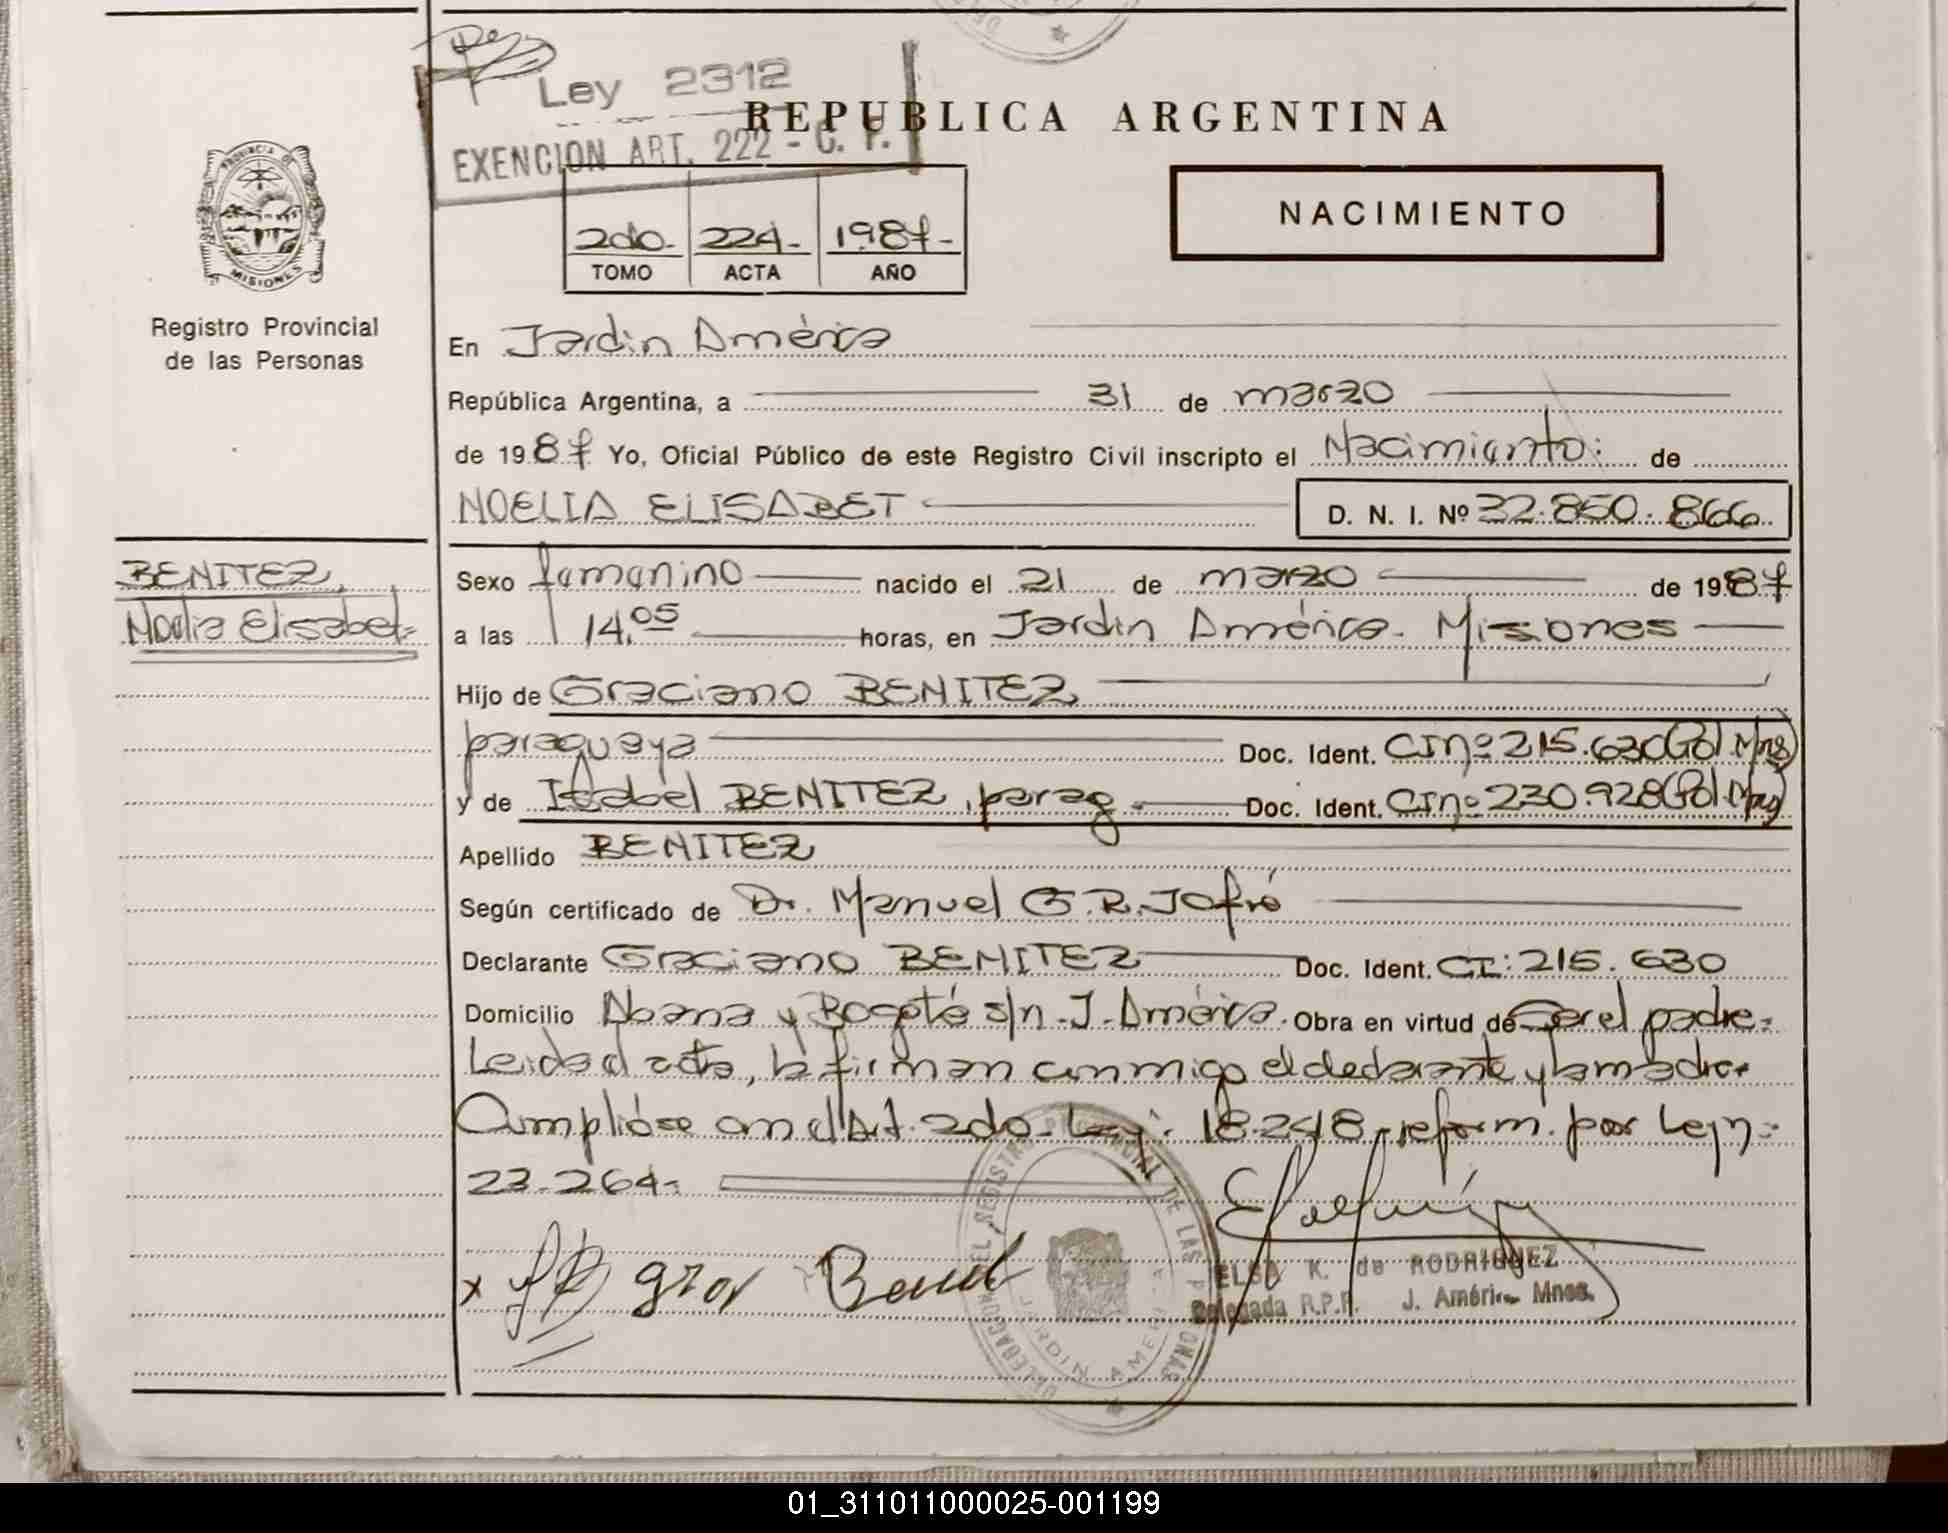 Ley 2312
REPUBLICA ARGENTINA
EXENCION ART. 222 - C. F.
PROVINCIA DE
MISIONES
Registro Provincial
de las Personas
NACIMIENTO
2do- 224- 1987-
TOMO ACTA AÑO
En Jardin América
República Argentina, a 31 de marzo
de 1987 Yo, Oficial Público de este Registro Civil inscripto el Nacimiento: de
NOELIA ELISABET D. N. I. Nº 32.850.866
BENITEZ,
Noelia Elisabet=
Sexo femenino nacido el 21 de marzo de 1987
a las 14,05 horas, en Jardin América. Misiones
Hijo de Graciano BENITEZ
paraguaya Doc. Ident. CInº 215.630(Pol Mns)
y de Isabel BENITEZ, parag. Doc. Ident. CInº 230.928(Pol.Mns)
Apellido BENITEZ
Según certificado de Dr. Manuel G.R. Jofré
Declarante Graciano BENITEZ Doc. Ident. CI: 215.630
Domicilio y Bogotá s/n. J. América. Obra en virtud de Ser el padre=
Leida el acta, la firman conmigo el declarante y la madre.
Cumplióse con el Art. 2do. Ley: 18.248 reform. por Ley n=
23.264-
ELSA K. de RODRIGUEZ
Delegada R.P.P. J. América Mnes.
DELEGACION DEL REGISTRO PROVINCIAL DE LAS PERSONAS
JARDIN AMERICA
01_311011000025-001199